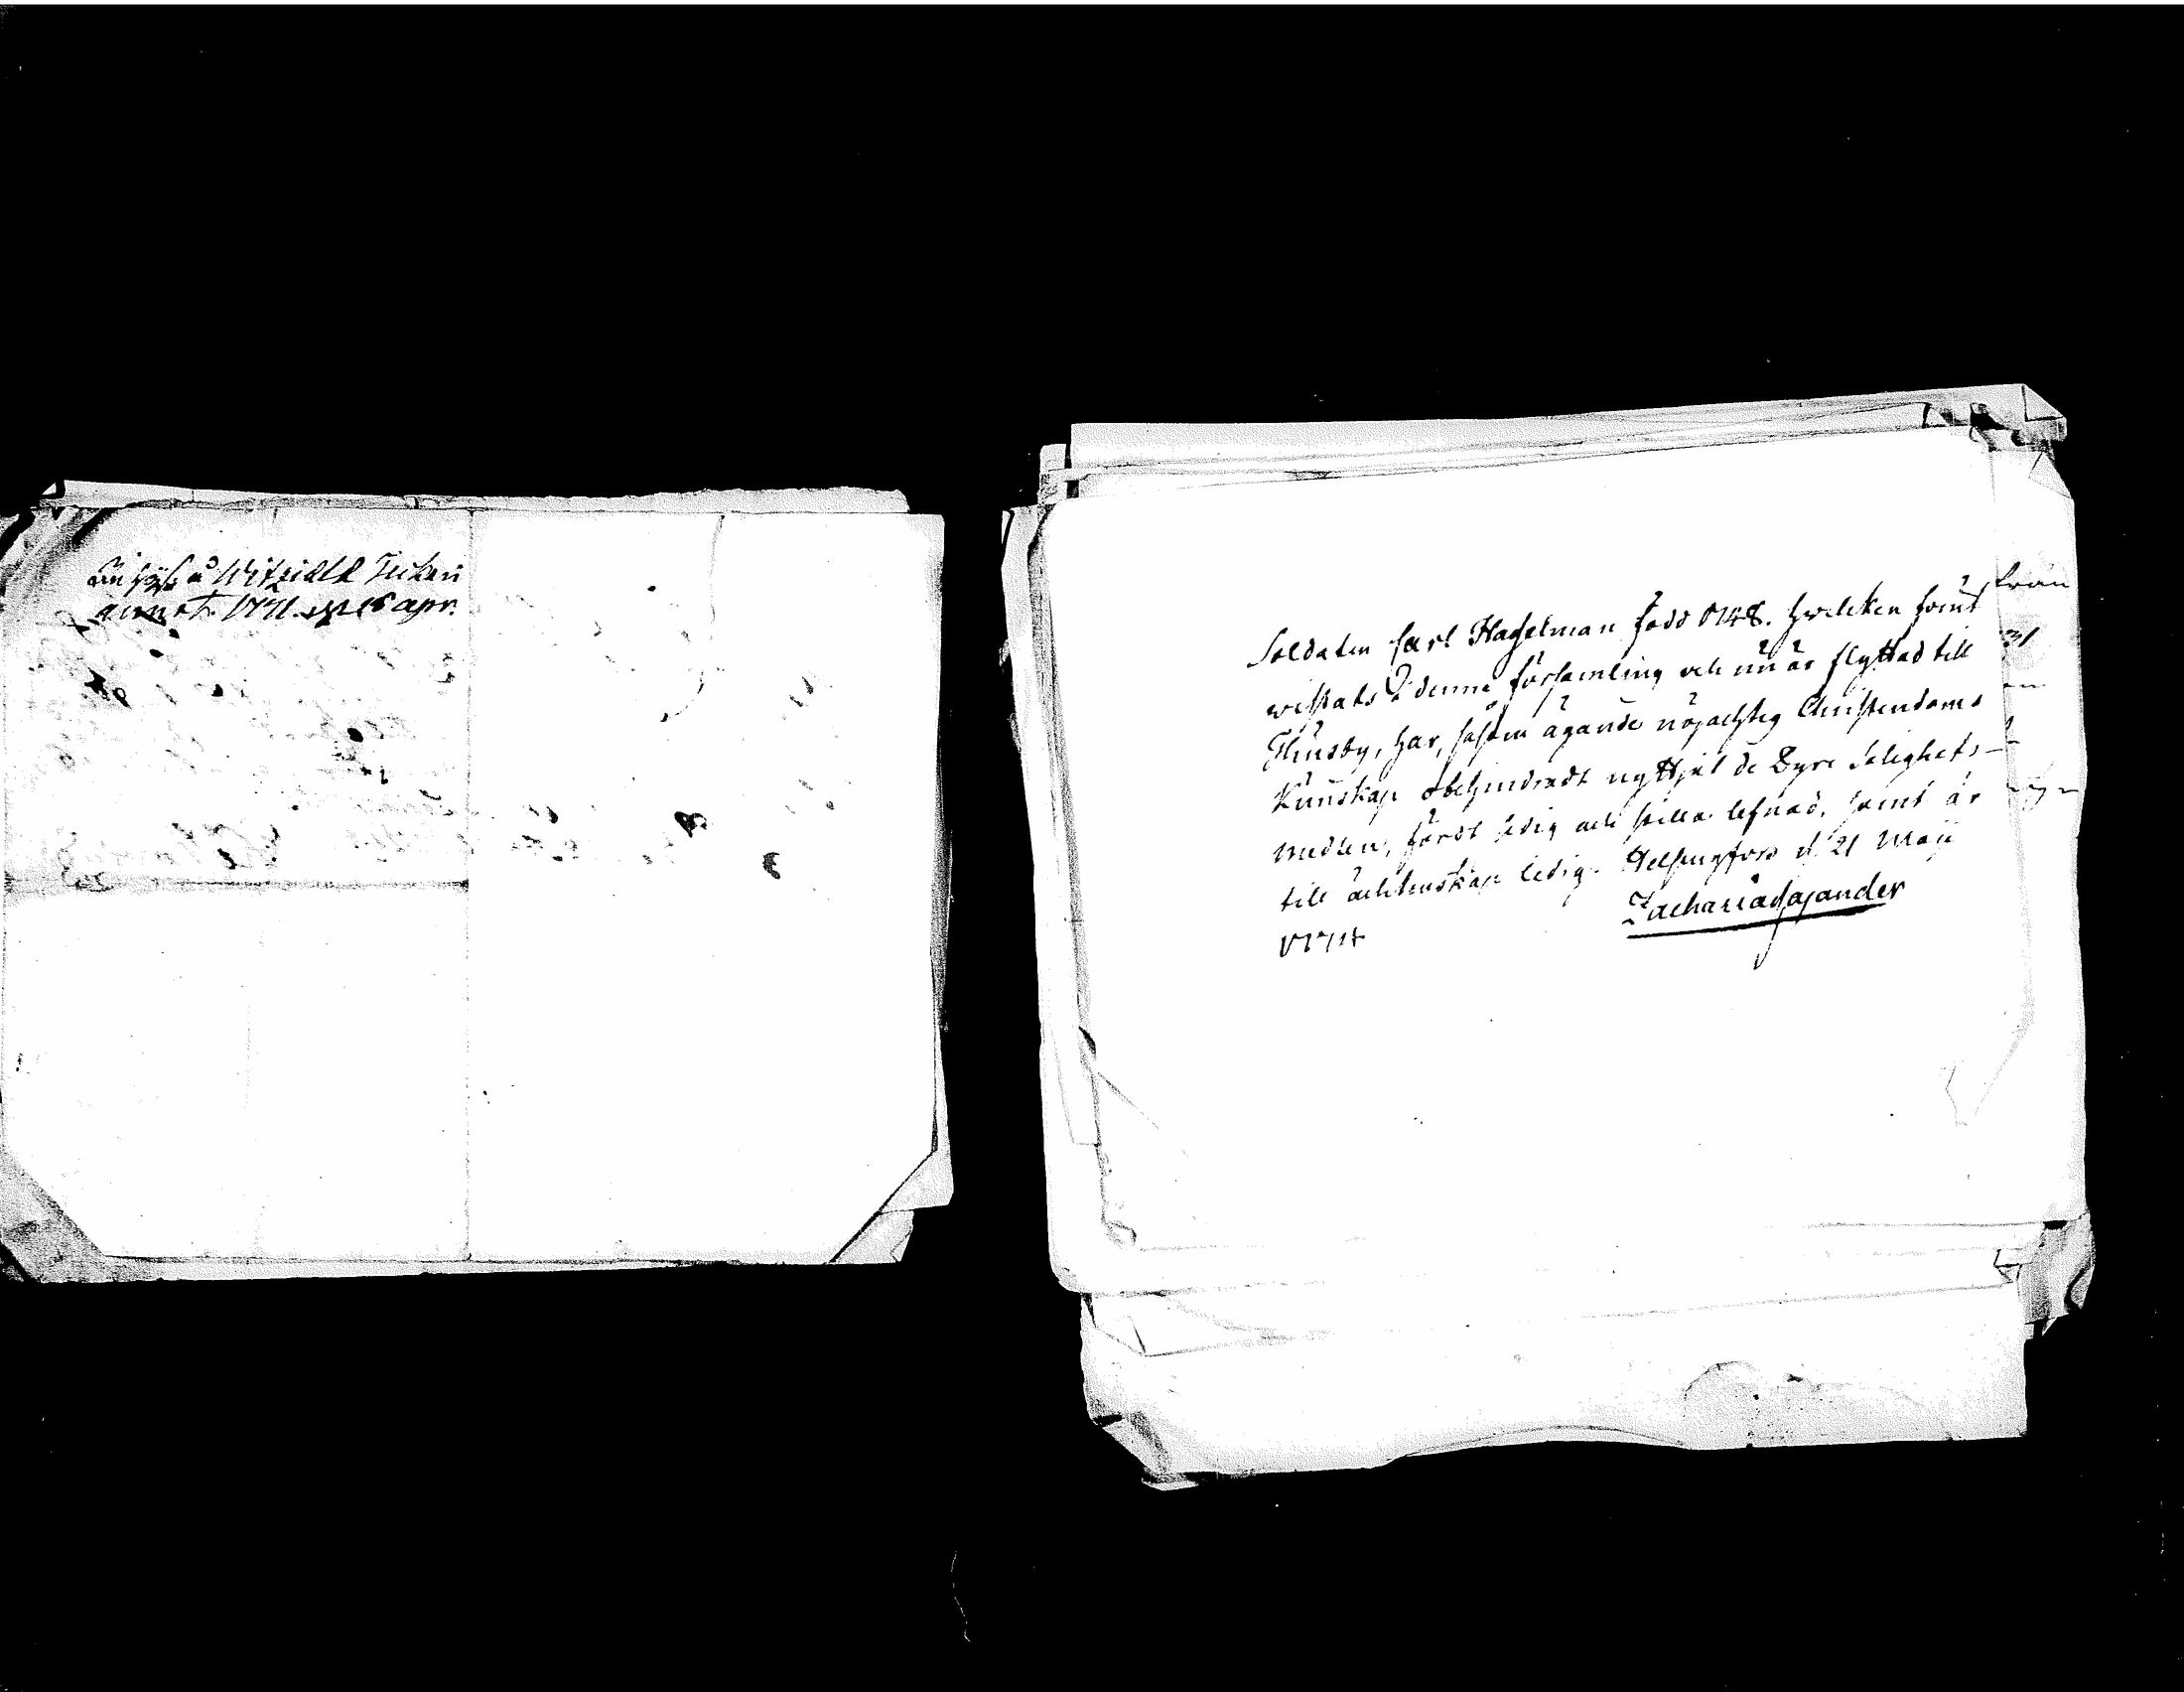 annot. 1771 d 18 apr.
Soldaten Carl Hagelman född 1748. hwilcken förut
wistats i denna församling och nu är flyttad till
Thusby, har, såsom ägande nöjachtig Christendoms
Kunskap obehindradt nyttjat de Dyre Salighets-
medlen, fördt sedig och stilla lefnad, samt är
till ächtenskap ledig. Helsingfors d. 21 Maji
1771
Zacharias Cajander
från
31